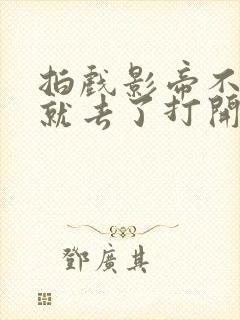 拍戲影帝不
就去了打開
鄧廣其